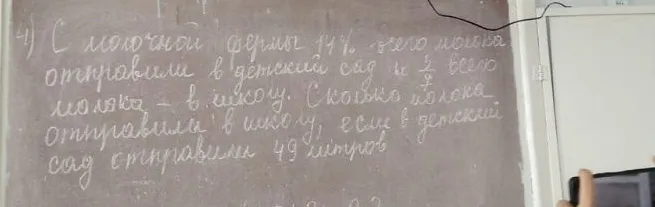 4) С молочной фермы 14% всего молока
отправили в детский сад и 3/7 всего
молока – в школу. Сколько молока
отправили в школу, если в детский
сад отправили 49 литров